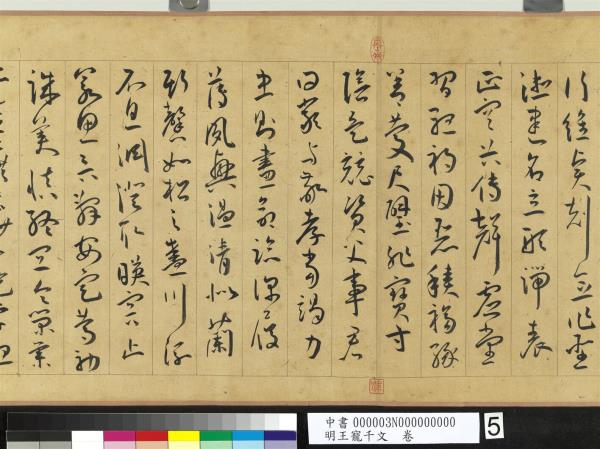 行維賢剋念作聖
德建名立形端表
正空谷傳聲虛堂
習聽禍因惡積福緣
善慶尺璧非寶寸
陰是競資父事君
曰嚴與敬孝當竭力
忠則盡命臨深履
薄夙興溫清似蘭
斯馨如松之盛川流
不息淵澄取映容止
若思言辭安定篤初
誠美慎終宜令榮業
中書 000003N000000000
明王寵千文 卷
5